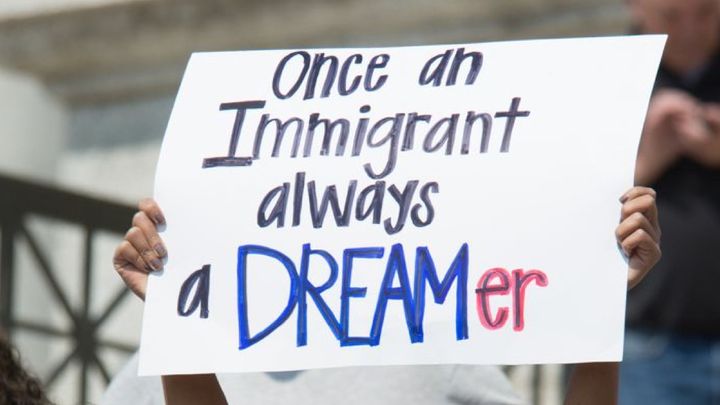 Once an
Immigrant
always
a DREAMer